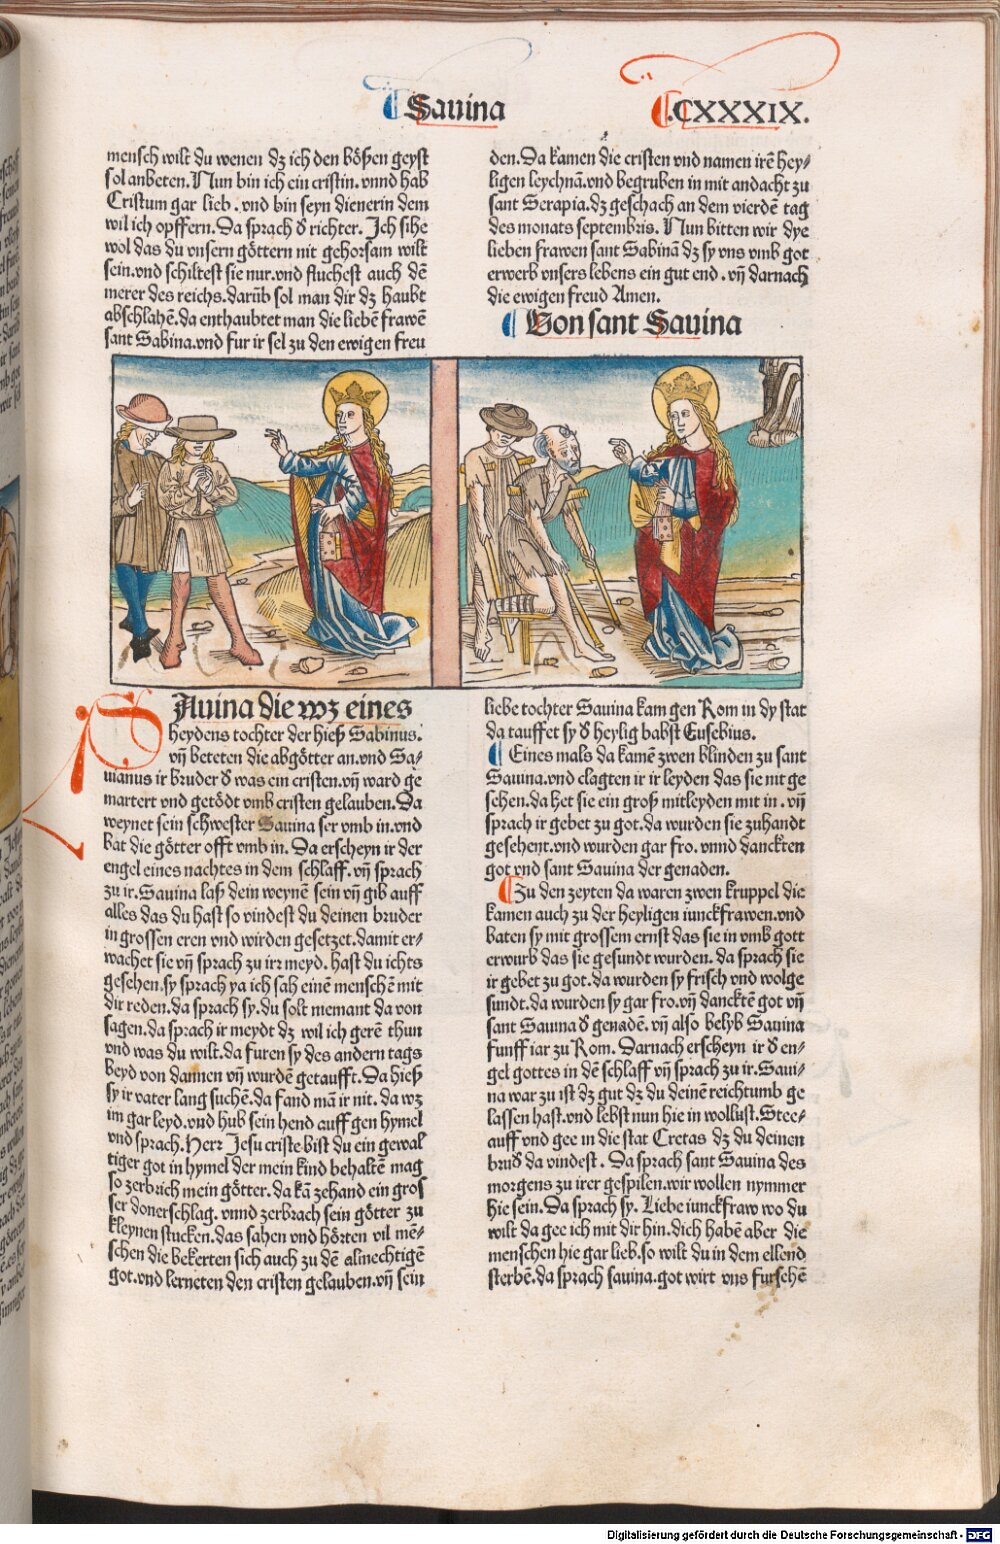 Sauina
.CXXXIX.
mensch wilt du wenen dz ich den bößen geyst
sol anbeten. Nun bin ich ein cristin. vnnd hab
Cristum gar lieb . vnd bin seyn dienerin dem
wil ich opffern. Da sprach d̕ richter. Ich sihe
wol das du vnsern göttern nit gehorsam wilt
sein. vnd schiltest sie nur. vnd fluchest auch dē
merer des reichs. darūb sol man dir dz haubt
abschlahē. da enthaubtet man die liebē frawē
sant Sabina. vnd fur ir sel zu den ewigen freu
den. Da kamen die cristen vnd namen irē hey⸗
ligen leychnā. vnd begruben in mit andacht zu
sant Serapia. dz geschach an dem vierdē tag
des monats septembris. Nun bitten wir dye
lieben frawen sant Sabinā dz sy vns vmb got
erwerb vnsers lebens ein gut end . vn̄ darnach
die ewigen freud Amen.
Von sant Sauina
SAuina die wz eines
heydens tochter der hieß Sabinus.
vn̄ beteten die abgötter an. vnd Sa⸗
uianus ir bruder d̕ was ein cristen. vn̄ ward ge
martert vnd getödt vmb cristen gelauben. Da
weynet sein schwester Sauina ser vmb in. vnd
bat die götter offt vmb in. Da erscheyn ir der
engel eines nachtes in dem schlaff. vn̄ sprach
zu ir. Sauina laß dein weynē sein vn̄ gib auff
alles das du hast so vindest du deinen bruder
in grossen eren vnd wirden gesetzet. damit er⸗
wachet sie vn̄ sprach zu irr meyd. hast du ichts
gesehen. sy sprach ya ich sah einē menschē mit
dir reden. da sprach sy. du solt niemant da von
sagen. da sprach ir meydt dz wil ich gerē thun
vnd was du wilt. da furen sy des andern tags
beyd von dannen vn̄ wurdē getaufft. Da hieß
sy ir vater lang suchē. da fand mā ir nit. da wz
im gar leyd. vnd hub sein hend auff gen hymel
vnd sprach. Herr Jesu criste bist du ein gewal
tiger got in hymel der mein kind behaltē mag
so zerbrich mein götter. da kā zehand ein gros
ser donerschlag. vnnd zerbrach sein götter zu
kleynen stucken. das sahen vnd hörten vil mē⸗
schen die bekerten sich auch zu dē almechtigē
got. vnd lerneten den cristen gelauben. vn̄ sein
liebe tochter Sauina kam gen Rom in dy stat
da tauffet sy d̕ heylig babst Eusebius.
Eines mals da kamē zwen blinden zu sant
Sauina. vnd clagten ir ir leyden das sie nit ge
sehen. da het sie ein groß mitleyden mit in . vn̄
sprach ir gebet zu got. da wurden sie zuhandt
gesehent. vnd wurden gar fro. vnnd danckten
got vnd sant Sauina der genaden.
Zu den zeyten da waren zwen kruppel die
kamen auch zu der heyligen iunckfrawen. vnd
baten sy mit grossem ernst das sie in vmb gott
erwurb das sie gesundt wurden. da sprach sie
ir gebet zu got. da wurden sy frisch vnd wolge
sundt. da wurden sy gar fro. vn̄ dancktē got vn̄
sant Sauina d̕ genadē. vn̄ also belyb Sauina
funff iar zu Rom. Darnach erscheyn ir d̕ en⸗
gel gottes in dē schlaff vn̄ sprach zu ir. Saui⸗
na war zu ist dz gut dz du deinē reichtumb ge
lassen hast. vnd lebst nun hie in wollust. Stee⸗
auff vnd gee in die stat Cretas dz du deinen
brud̕ da vindest . Da sprach sant Sauina des
morgens zu irer gespilen. wir wollen nymmer
hie sein. Da sprach sy. Liebe iunckfraw wo du
wilt da gee ich mit dir hin. dich habē aber die
menschen hie gar lieb. so wilt du in dem ellend
sterbē. da sprach sauina. got wirt vns fursehē
Digitalisierung gefördert durch die Deutsche Forschungsgemeinschaft - DFG